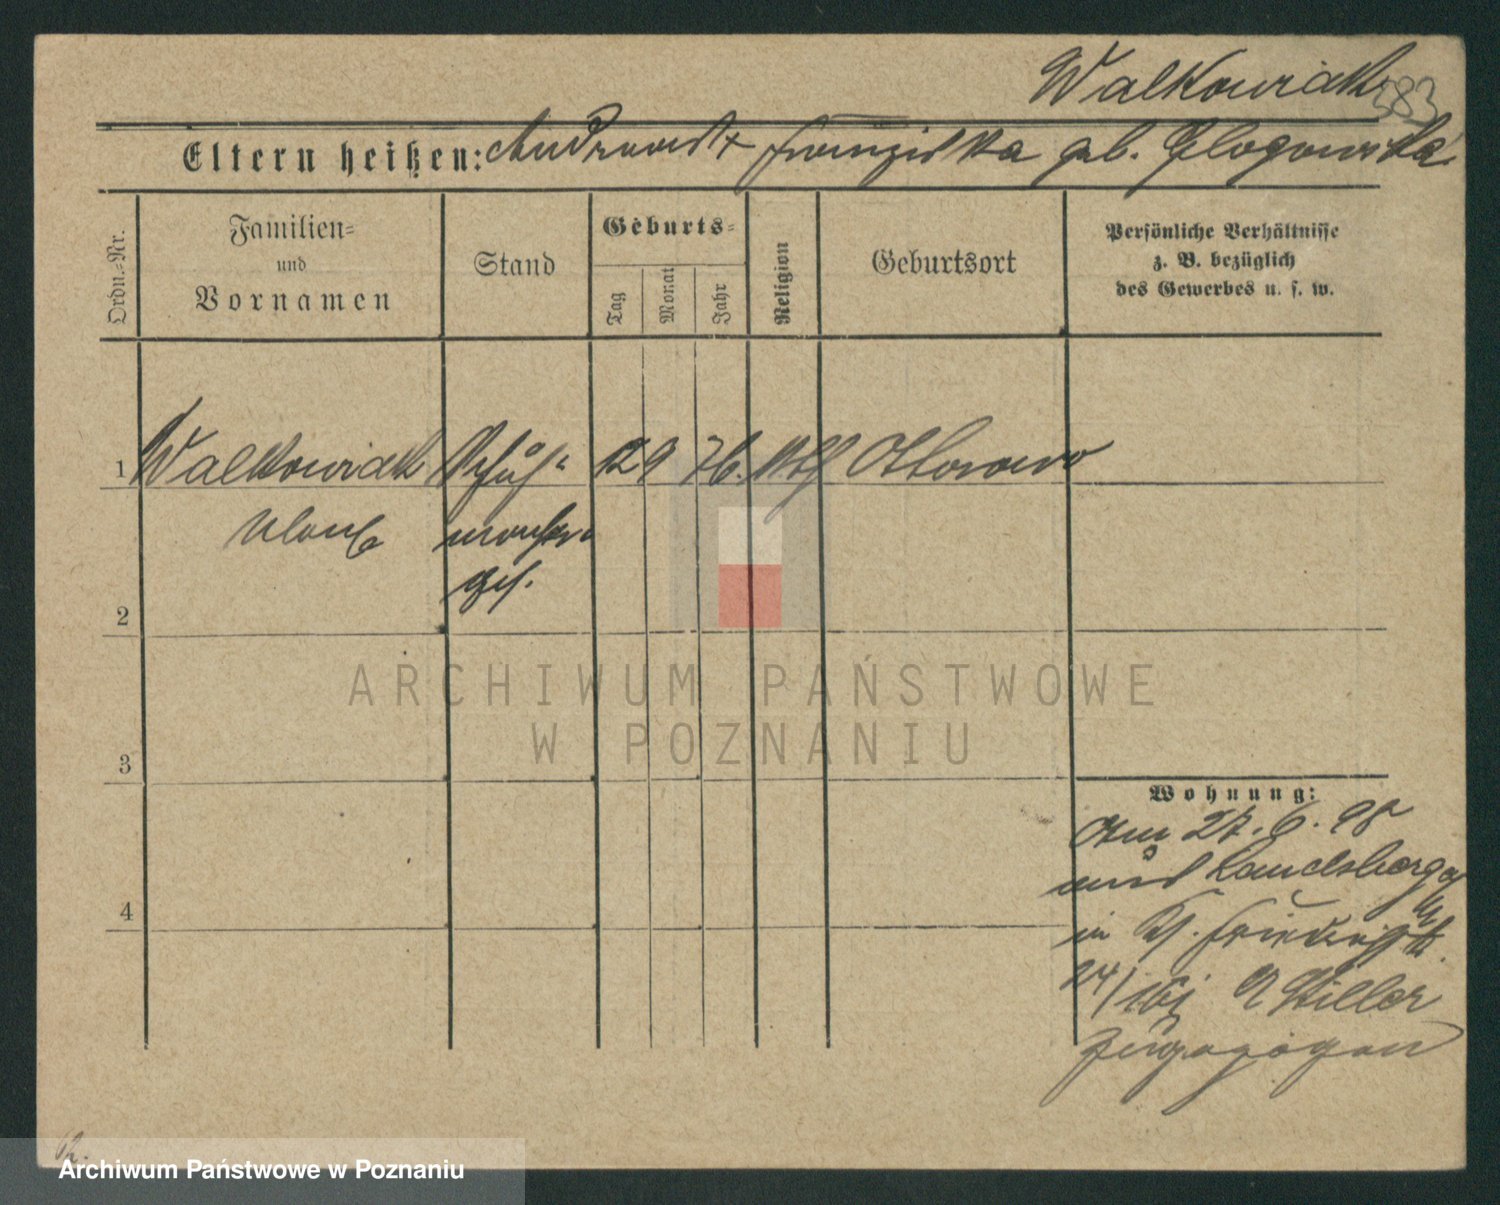 Walkowiak
583
Eltern heißen: Andreas & Franziska geb. Glogowska
Ordn.=Nr.
Familien=
und
Vornamen
Stand
Geburts=
Tag
Monat
Jahr
Religion
Geburtsort
Persönliche Verhältnisse
z. B. bezüglich
des Gewerbes u. s. w.
1 Walkowiak Schuh= 12 9 76. kth Otorowo
macher=
ges.
2
3
4
Wohnung:
Am 27. 6. 98
aus Landsberg a/
in Kl. Friedrichstr.
24/ bei Miller
zugezogen
ARCHIWUM PAŃSTWOWE
W POZNANIU
Archiwum Państwowe w Poznaniu